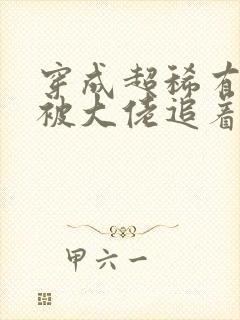 穿成超稀有
被大佬追着
甲六一